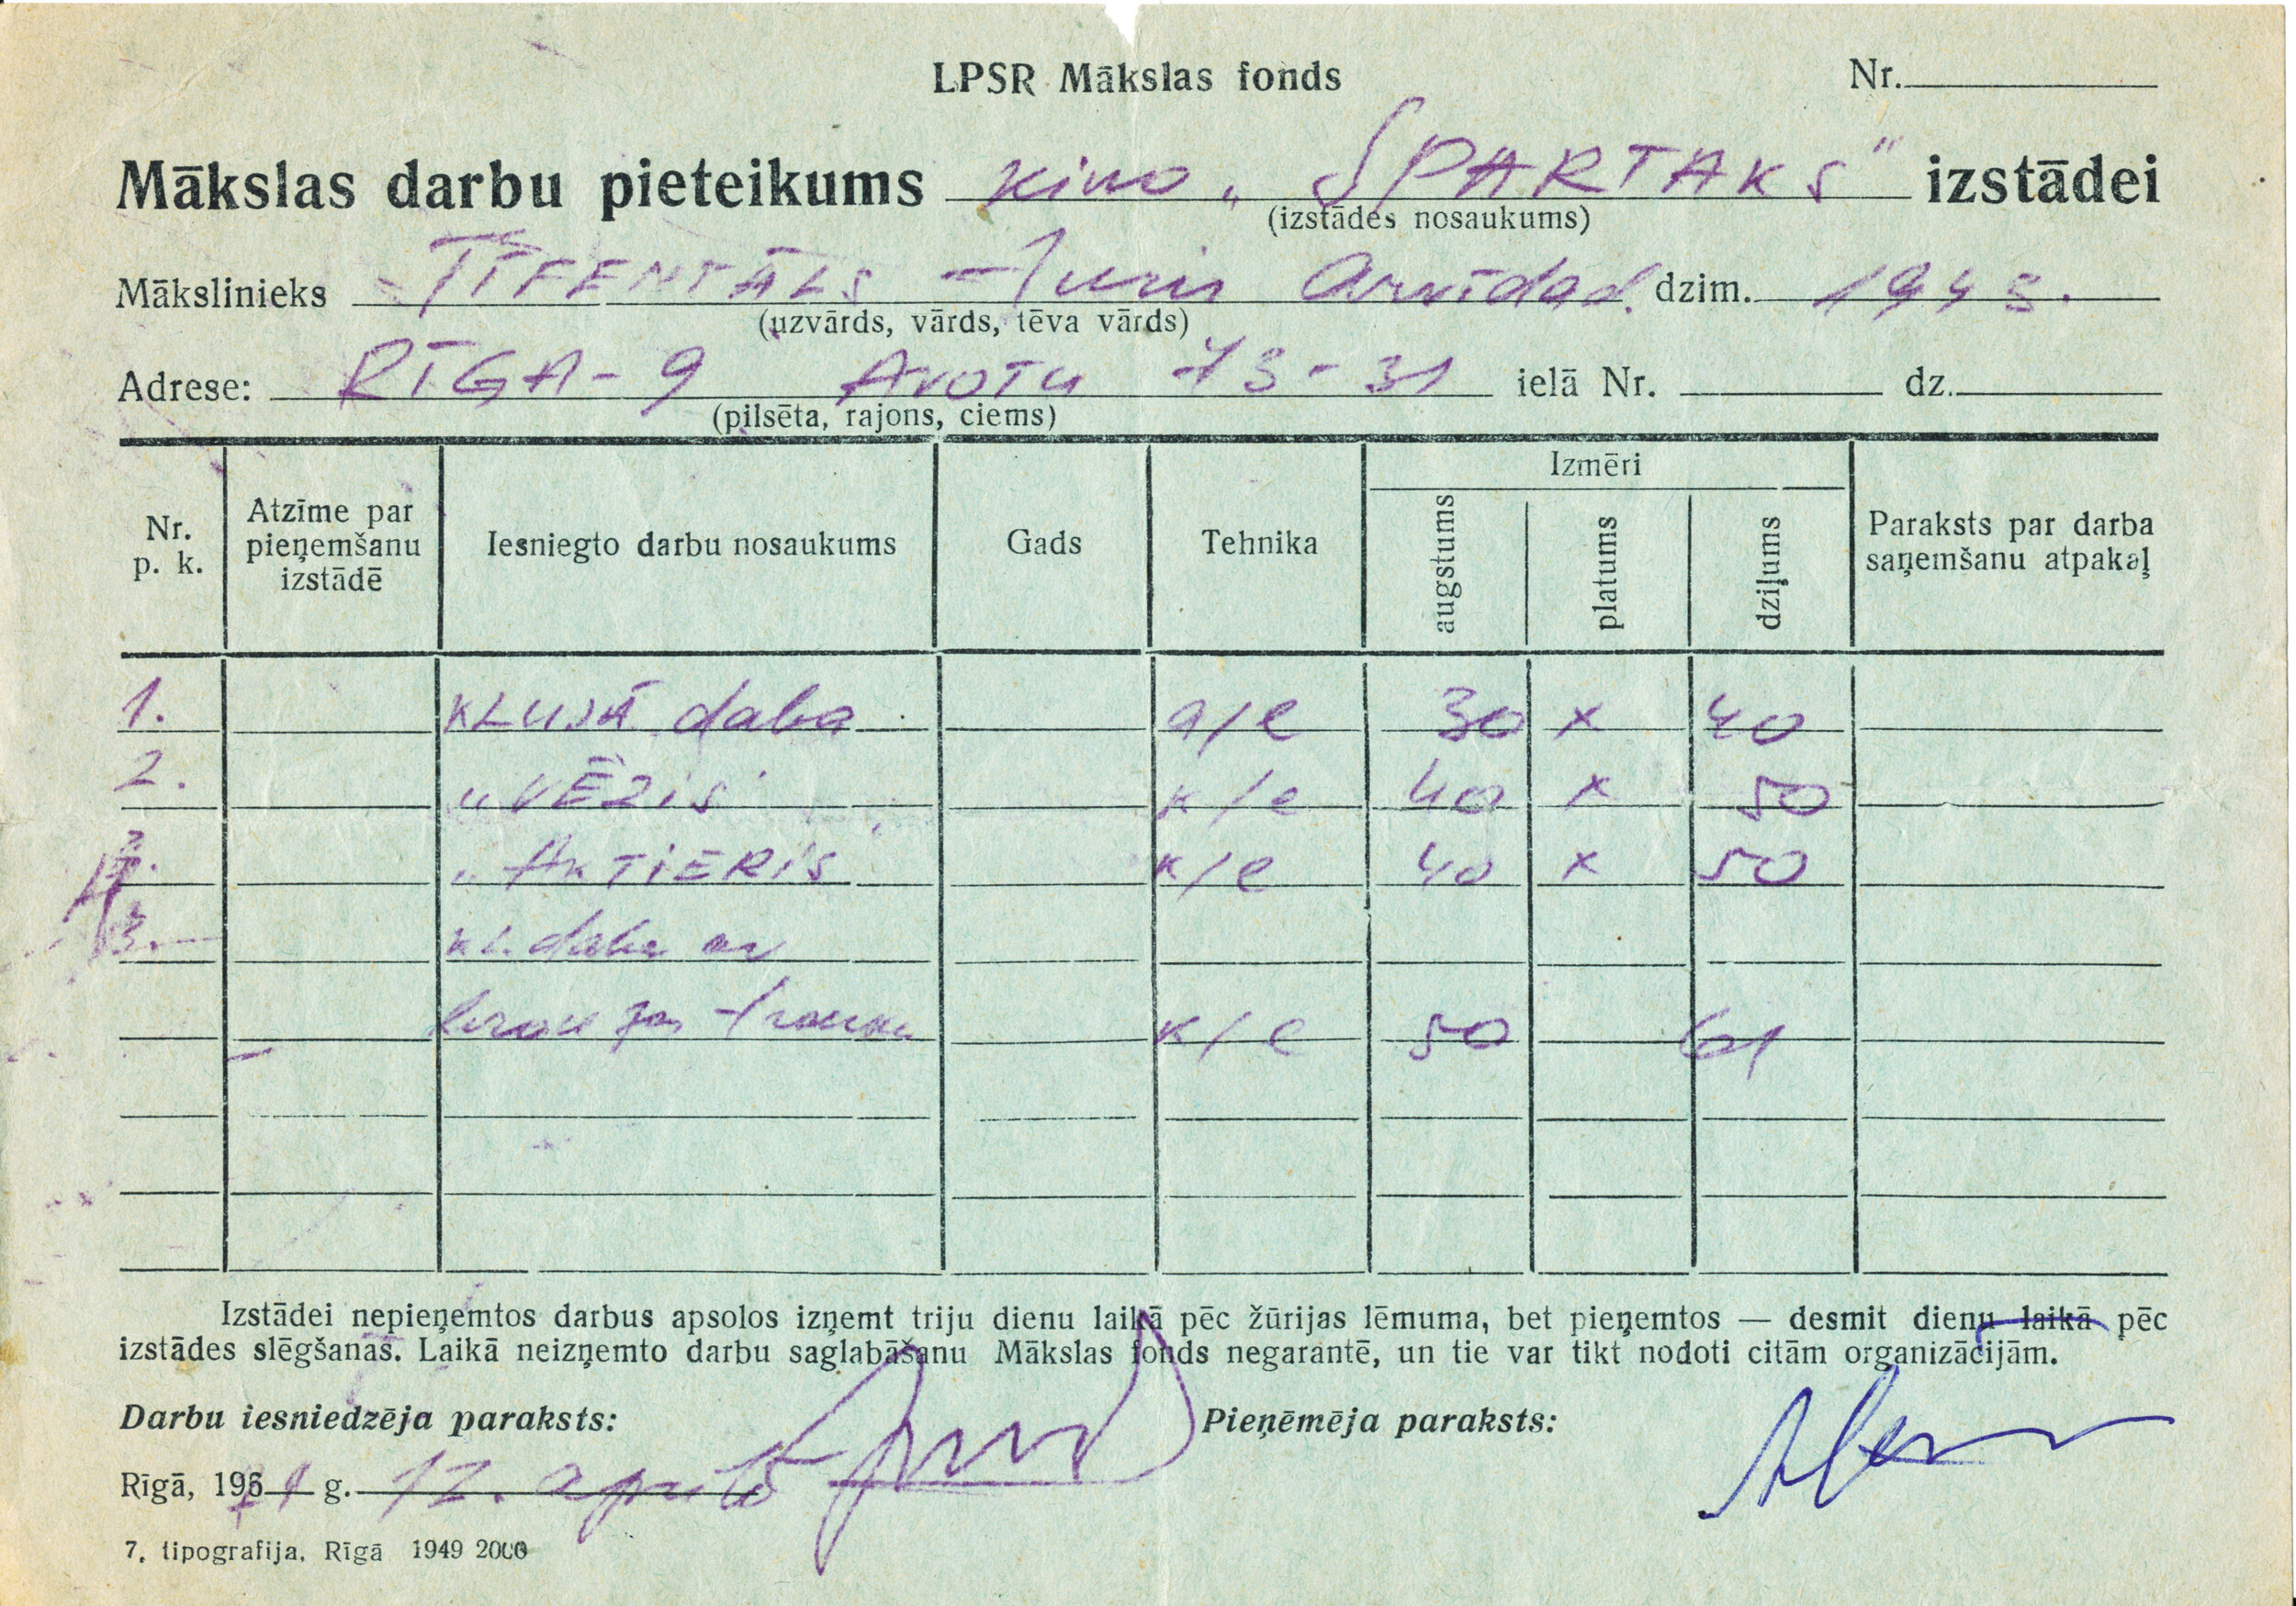 LPSR Mākslas fonds
Nr.
Mākslas darbu pieteikums kino „SPARTAKS" izstādei
(izstādes nosaukums)
Mākslinieks TĪFENTĀLS Juris Arvīda d. dzim. 1943.
(uzvārds, vārds, tēva vārds)
Adrese: RĪGA-9 AVOTU 73-31 ielā Nr. dz.
(pilsēta, rajons, ciems)
Nr. p. k.
Atzīme par pieņemšanu izstādē
Iesniegto darbu nosaukums
Gads
Tehnika
Izmēri
augstums
platums
dziļums
Paraksts par darba saņemšanu atpakaļ
1. KLUSĀ daba a/e 30 x 40
2. „VĒZIS" k/e 40 x 50
3. „AKTIERIS" k/e 40 x 50
kl. daba ar
bronzas trauku k/e 50 61
Izstādei nepieņemtos darbus apsolos izņemt triju dienu laikā pēc žūrijas lēmuma, bet pieņemtos — desmit dienu laikā pēc
izstādes slēgšanas. Laikā neizņemto darbu saglabāšanu Mākslas fonds negarantē, un tie var tikt nodoti citām organizācijām.
Darbu iesniedzēja paraksts:
Pieņēmēja paraksts:
Rīgā, 1971 g. 12. aprīlī
7. tipografija, Rīgā 1949 2000